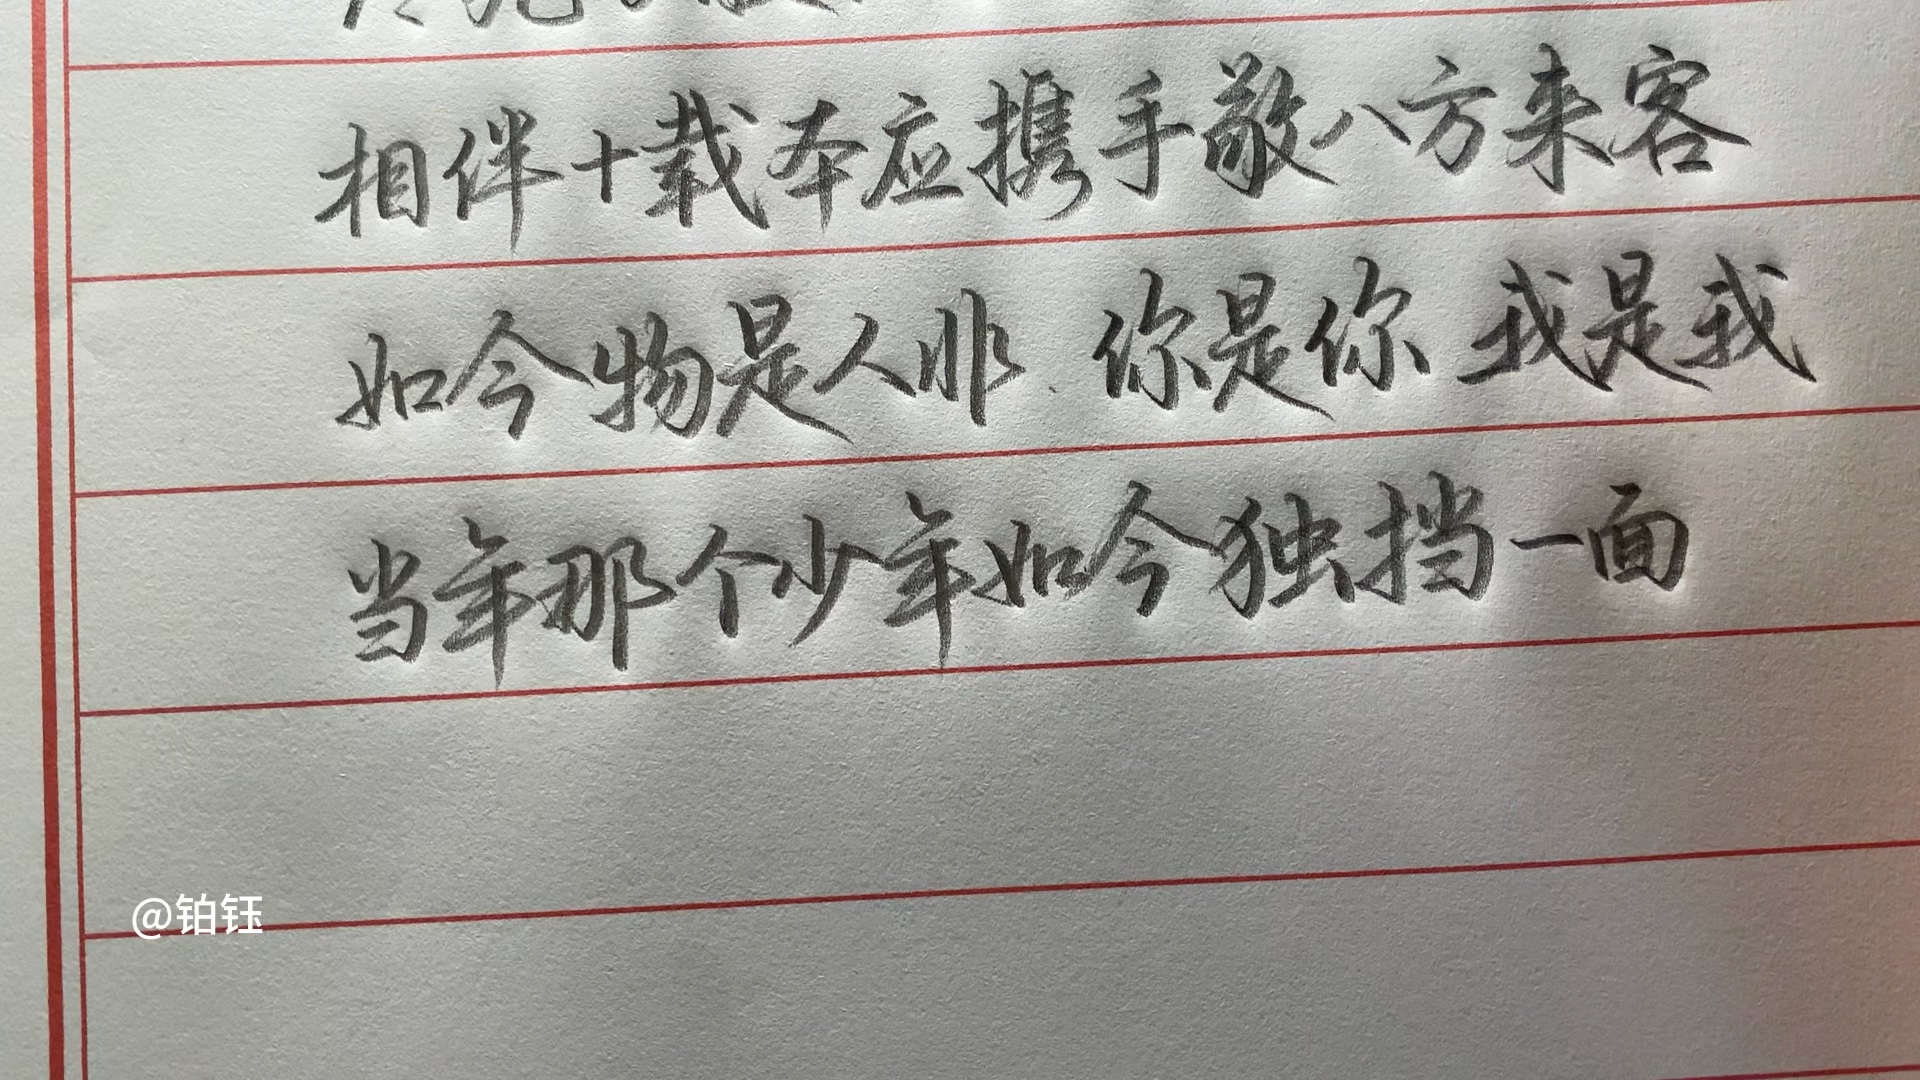 相伴十载本应携手敬八方来客
如今物是人非 你是你 我是我
当年那个少年如今独挡一面
@铂钰